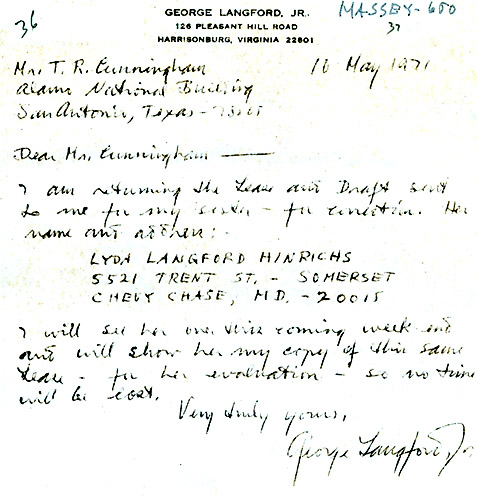 GEORGE LANGFORD, JR.
126 PLEASANT HILL ROAD
HARRISONBURG, VIRGINIA 22801
MASSEY-600
37
36
Mr. T. R. Cunningham
16 May 1971
Alamo National Building
San Antonio, Texas - 78205
Dear Mr. Cunningham
I am returning the Lease and Draft sent
to me for my sister - for correction. Her
name and address:-
LYDA LANGFORD HINRICHS
5521 TRENT ST. - SOMERSET
CHEVY CHASE, MD. - 20015
I will see her over this coming week-end
and will show her my copy of this same
Lease - for her evaluation - so no time
will be lost.
Very truly yours,
George Langford, Jr.